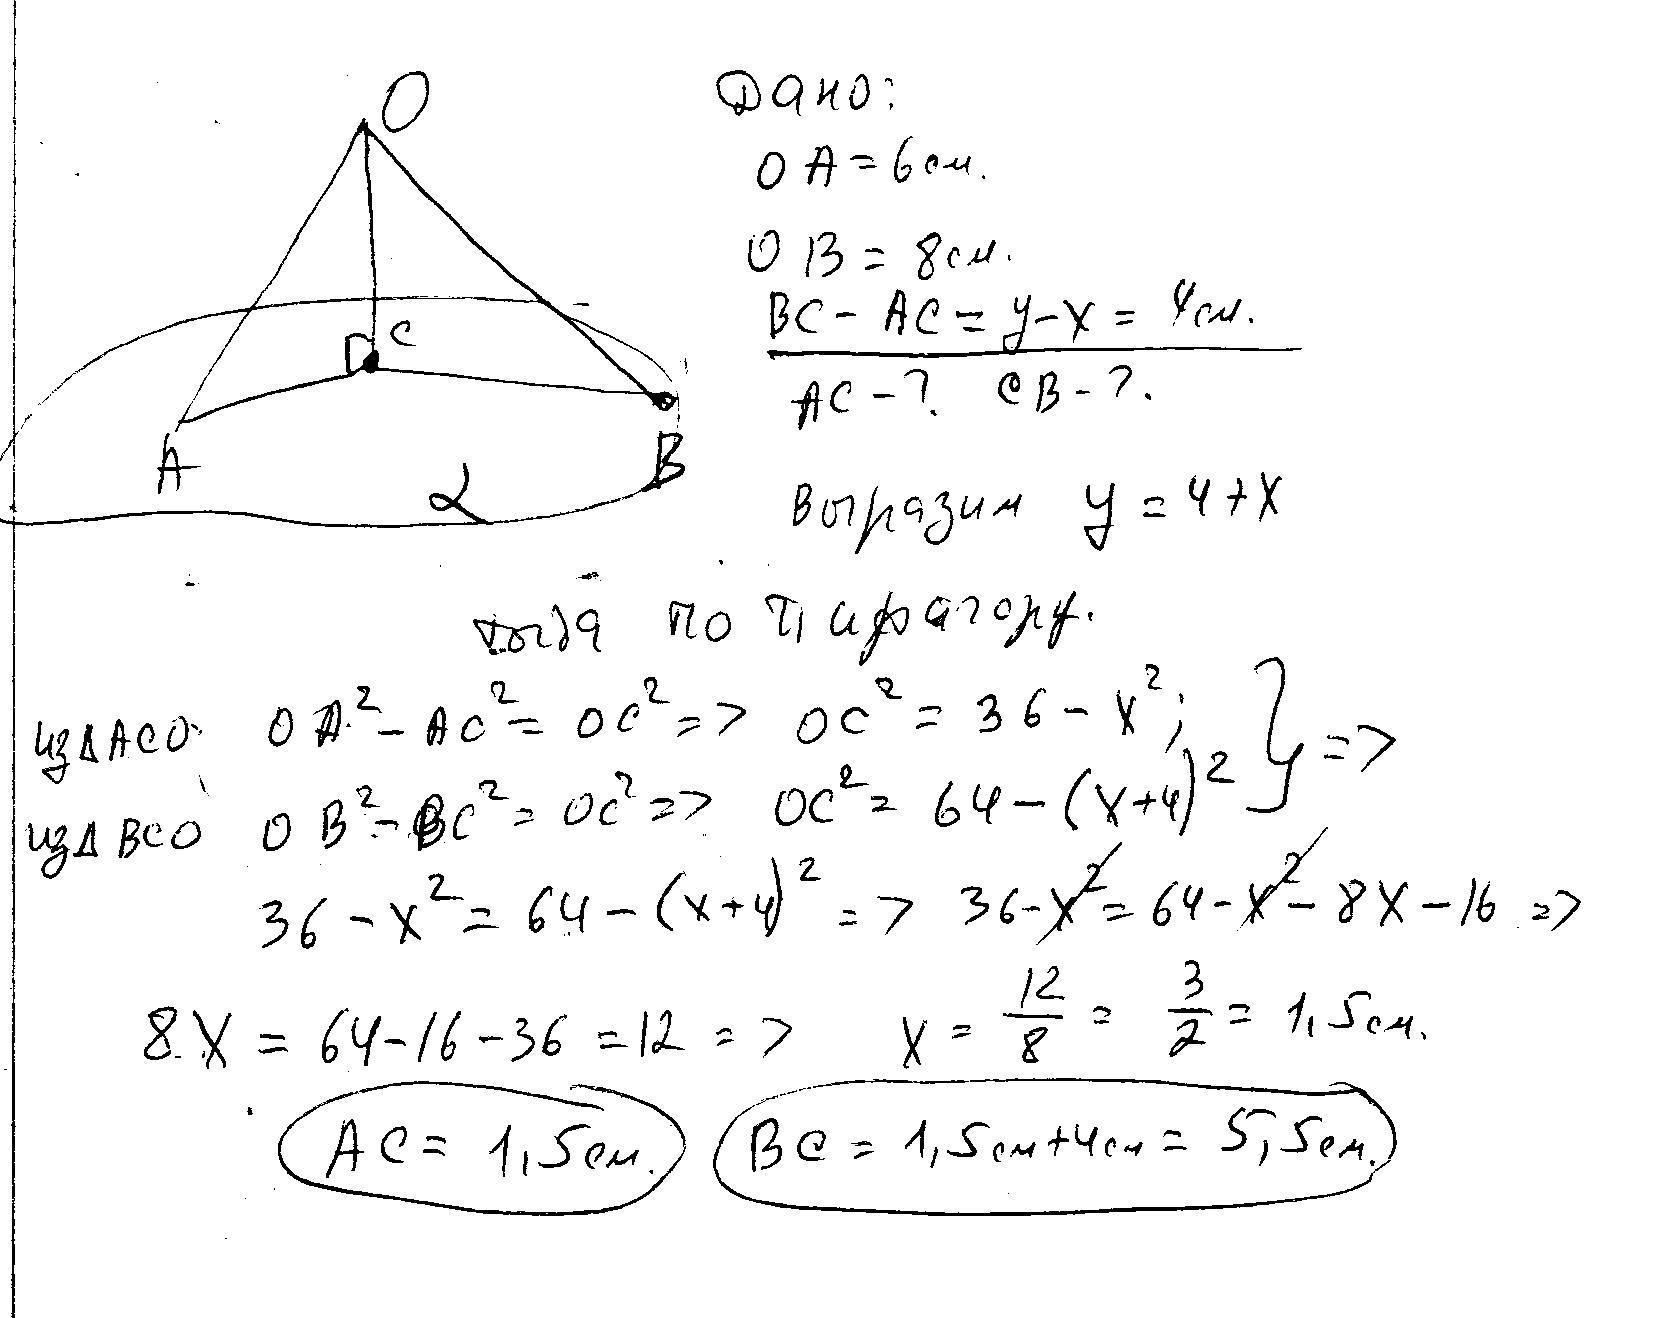 O
C
A
B
α
Дано:
OA = 6 см.
OB = 8 см.
BC - AC = y - x = 4 см.
AC - ? CB - ?.
Выразим y = 4 + x
тогда по Пифагору.
из Δ ACO OA² - AC² = OC² => OC² = 36 - x²; } =>
из Δ BCO OB² - BC² = OC² => OC² = 64 - (x+4)²
36 - x² = 64 - (x+4)² => 36 - x² = 64 - x² - 8x - 16 =>
8x = 64 - 16 - 36 = 12 => x = 12/8 = 3/2 = 1,5 см.
AC = 1,5 см. BC = 1,5 см + 4 см = 5,5 см.